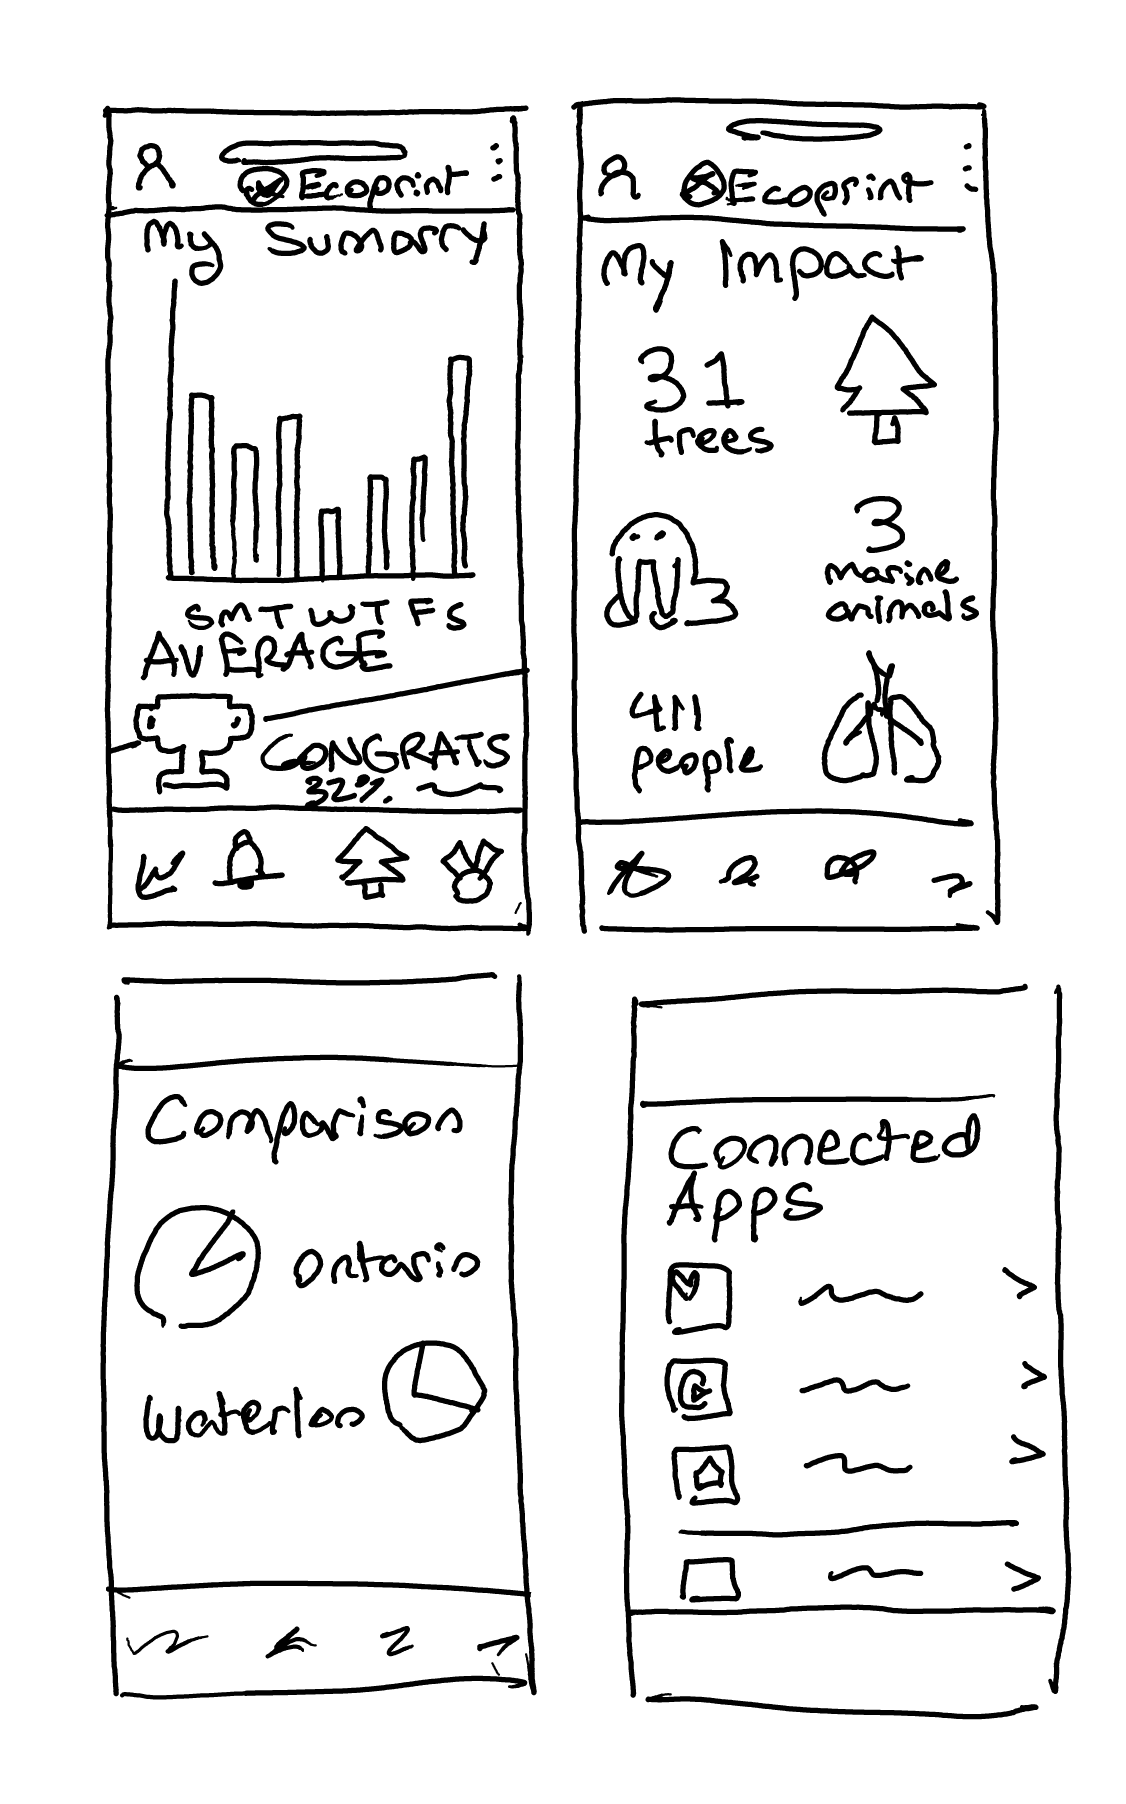 Ecoprint
My Sumarry
S M T W T F S
AVERAGE
CONGRATS
32%
Ecoprint
My Impact
31
trees
3
marine
animals
411
people
Comparison
Ontario
Waterloo
Connected
Apps